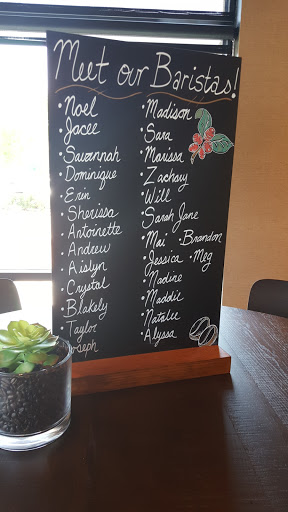 Meet our Baristas!
• Noel
• Jacee
• Savannah
• Dominique
• Erin
• Sherissa
• Antoinette
• Andrew
• Aislyn
• Crystal
• Blakely
• Taylor
Joseph
• Madison
• Sara
• Marissa
• Zachary
• Will
• Sarah Jane
• Mai • Brandon
• Jessica • Meg
• Nadine
• Maddie
• Natalie
• Alyssa